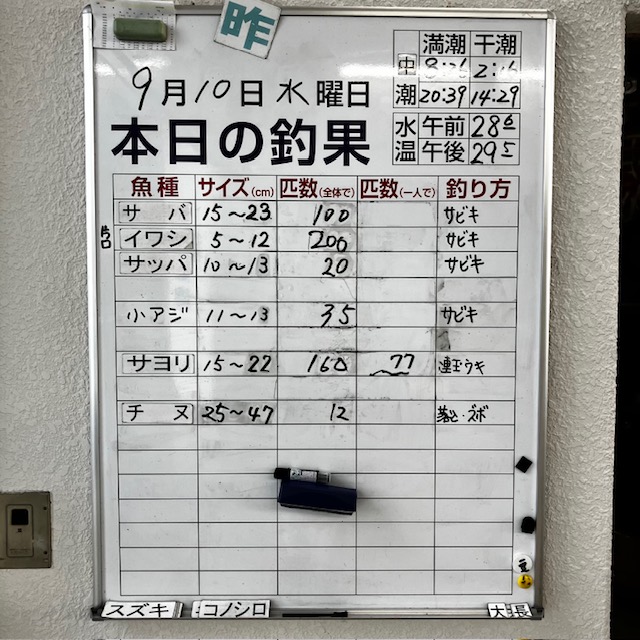 昨
満潮 干潮
中潮 8:26 2:16
20:39 14:29
9月10日水曜日
本日の釣果
水温 午前 28.6
午後 29.5
魚種 サイズ(cm) 匹数(全体で) 匹数(一人で) 釣り方
サバ 15~23 100 サビキ
片口イワシ 5~12 200 サビキ
サッパ 10~13 20 サビキ
小アジ 11~13 35 サビキ
サヨリ 15~22 160 77 連玉ウキ
チヌ 25~47 12 落とし・ズボ
スズキ コノシロ 大 長